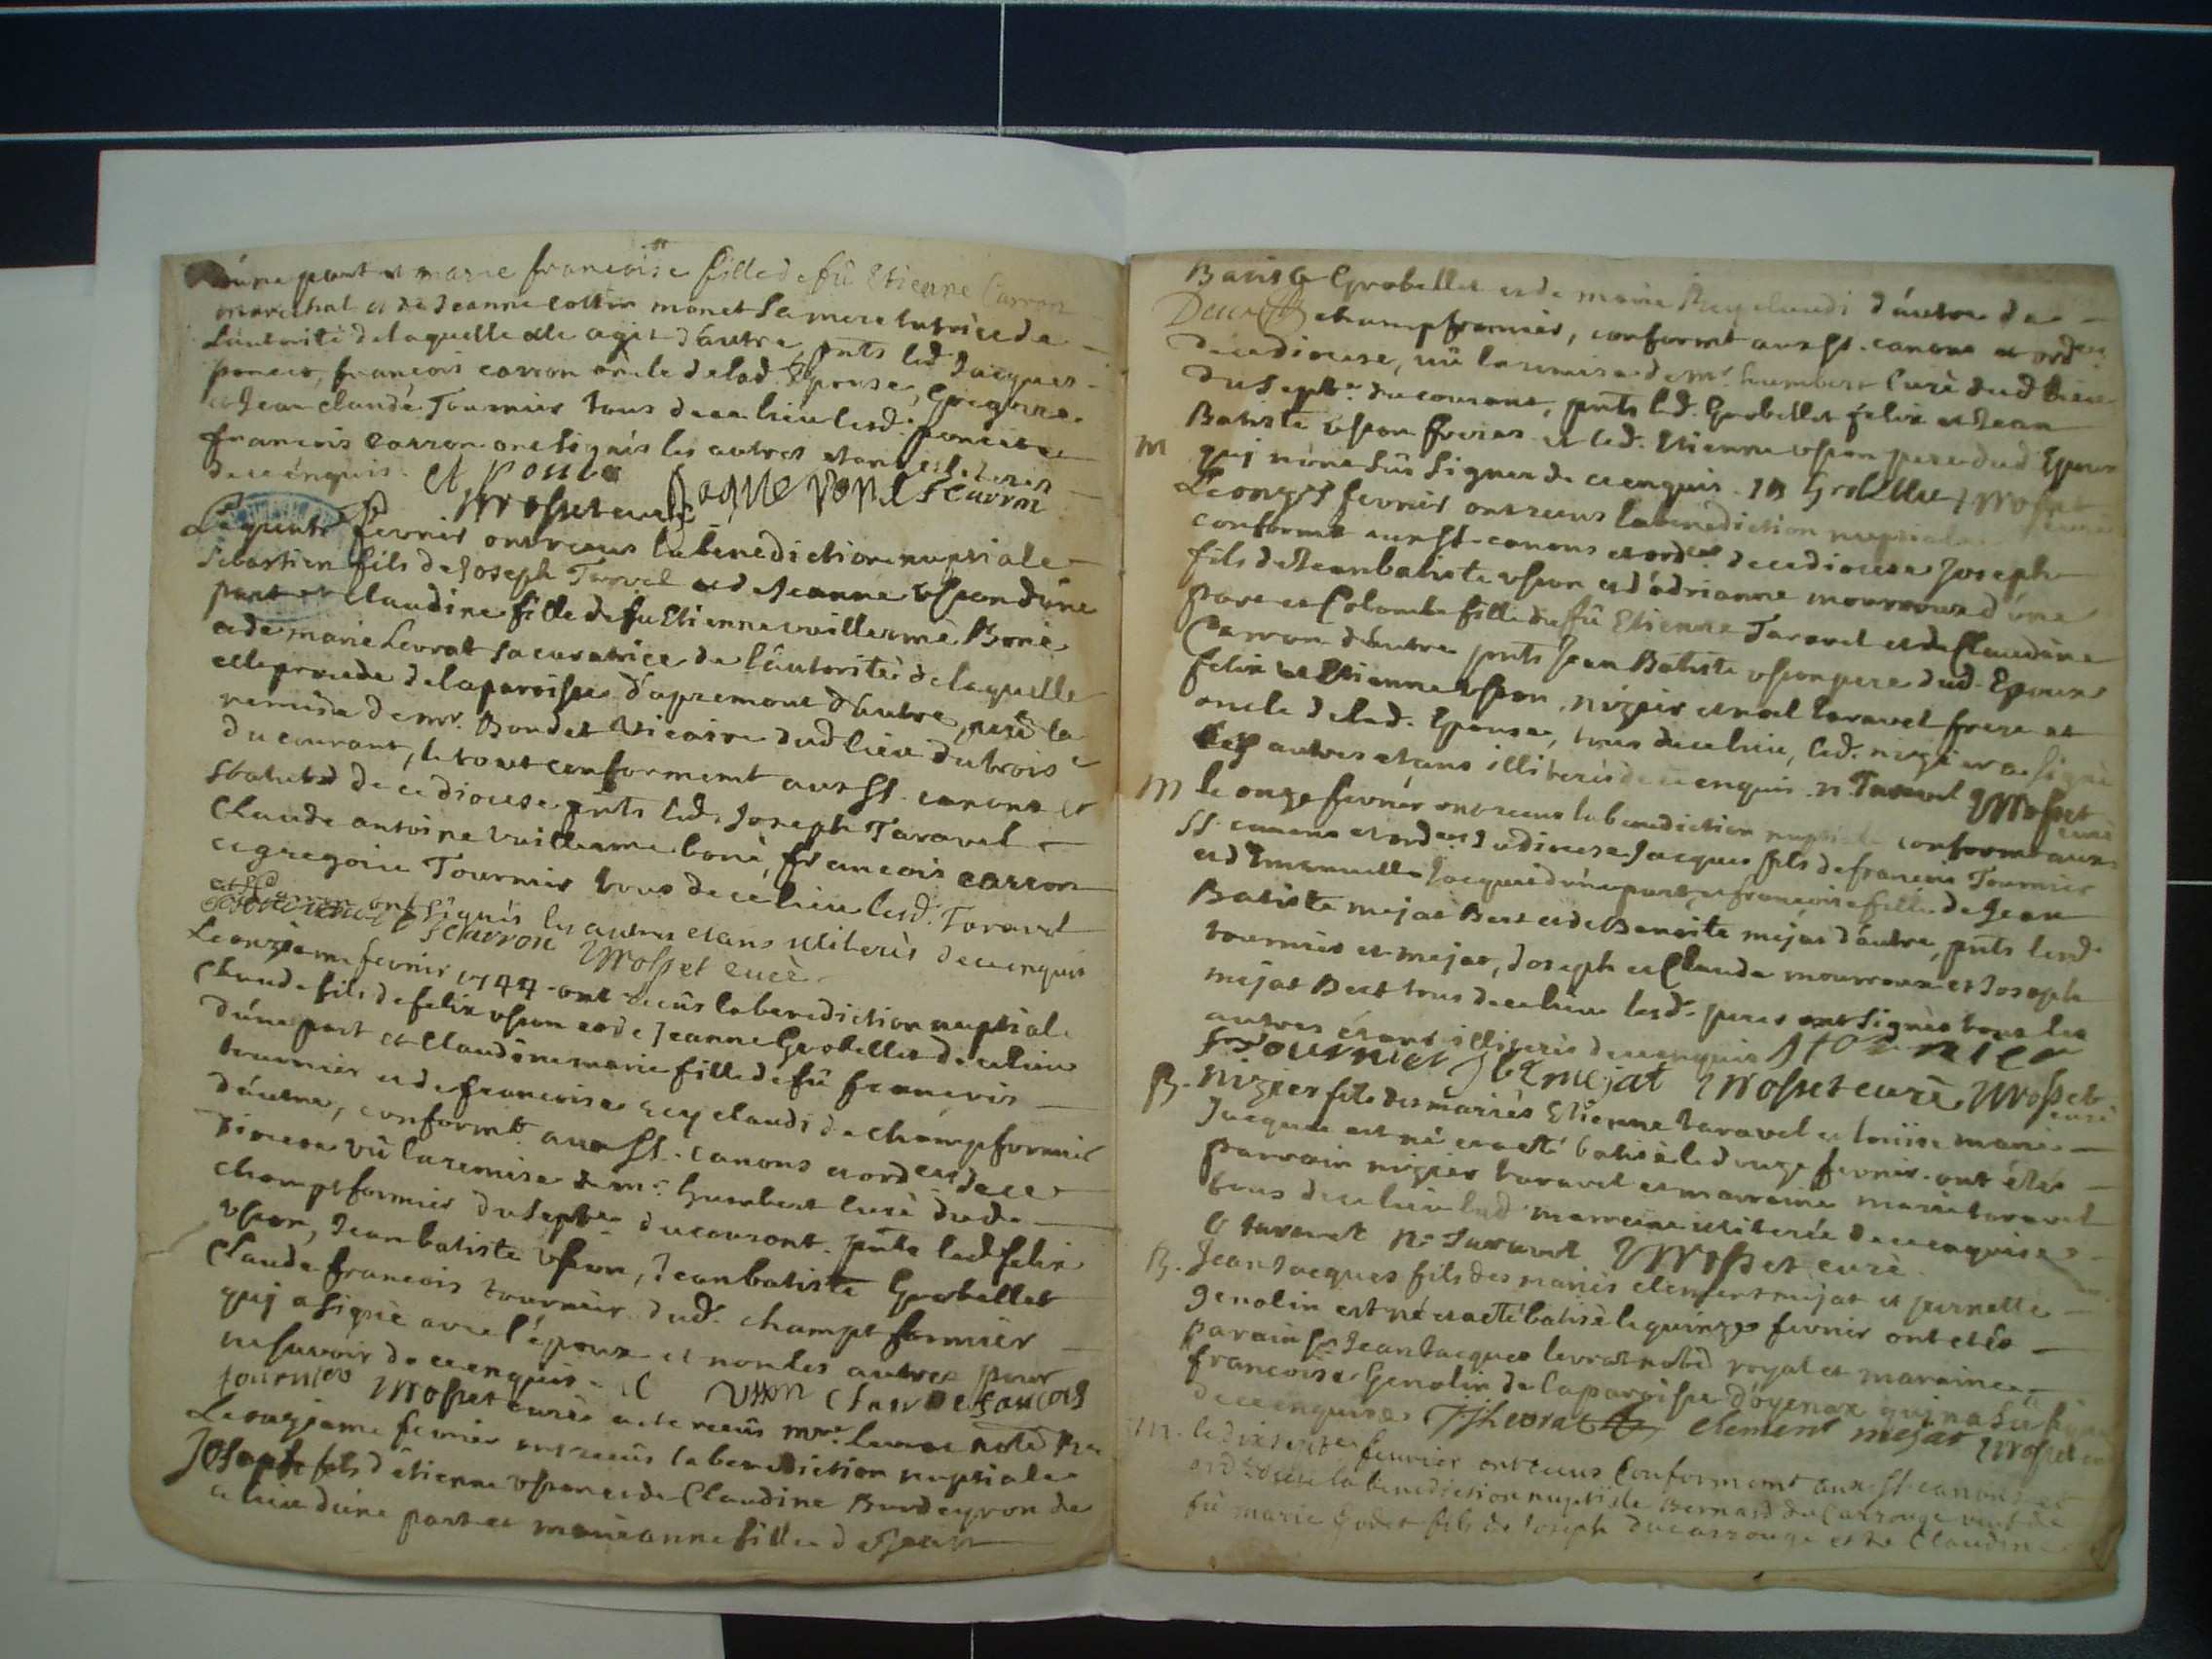 d'une part et marie francoise fille de fû Etienne Carron
marechal et de Jeanne cottin monet sa mere tutrice de
l'autorité de laquelle elle agit d'autre, pnts led. Jacques
poncet, francois carron oncle de lad. Epouse, Gregoire
et Jean claude Tournier tous de ce lieu lesd. poncet et
francois Carron ont signés les autres etans illiterés
de ce enquis. et ponce
Mosset curé Jaque ponce f carron
Le febvrier ont receus la benediction nuptiale
Sebastien fils de Joseph Taravel et de Jeanne Usson d'une
part et claudine fille de fu Etienne vuillerme Boné
et de marie Levrat sa curatrice de l'autorité de laquelle
elle procede de la paroisse d'apremont d'autre, veu la
remise de mr. Bondet vicaire dud lieu du trois
du courant, le tout conformemt aux SS. canons et
statuts de ce diocese pnts led. Joseph Taravel
Claude antoine vuillerme boné, francois carron
et gregoire Tournier tous de ce lieu lesd. Taravel
et Carron ont signés les autres etans illiterés de ce enquis
f carron Mosset curé
Le onzieme fevrier 1744 ont receûs la benediction nuptiale
Claude fils de felix usson et de Jeanne Grobellet de ce lieu
d'une part et Claudine marie fille de fû francois
tournier et de francoise Rey claudi de champfromier
d'autre, conformt. aux SS. canons et ordces de ce
diocese vû la remise de mr. humbert curé dud.
champtformier du sept du courant. pnts led. felix
usson, Jean batiste usson, Jean batiste Grobellet
Claude francois tournier dud. champt formier
quj a signé avec l'epoux et non les autres pour
ne savoir de ce enquis. C usson claude fancois
tournier Mosset curé
Le onzieme fevrier ont receûs la benediction nuptiale
Joseph fils d'etienne usson et de Claudine Burdeyron de
ce lieu d'une part et marie anne fille de Jean
Batiste Grobellet et de marie Rey claudi d'autre de
champfromier, conformt aux SS. canons et ordces
de ce diocese, vû la remise de mr. humbert Curé dud lieu
du sept. du courant, pnts led. Grobellet felix et Jean
Batiste usson freres et led. Etienne usson pere dud Epoux
M quj n'ont sûs signer de ce enquis. JB Grobellet Mosset
Le onze fevrier ont receus la benediction nuptiale
conformt aux SS. canons et ordces de ce diocese Joseph
fils de Jean batiste usson et d'adrianne mourroux d'une
part et Colombe fille de fû Etienne Taravel et de Claudine
Carron d'autre pnts Jean Batiste usson pere dud. Epoux
felix et Etienne usson, nizier et noel taravel frere et
oncle de lad. Epouse, tous de ce lieu, led. nizier a signé
les autres etans illiterés de ce enquis. n. Taravel Mosset curé
M le onze fevrier ont receus la benediction nuptiale conformt aux
SS. canons et ordces du diocese Jacques fils de francois Tournier
et d'Emanuelle Jacquie d'une part, et francoise fille de Jean
Batiste mejat Bert et de Benoite mejat d'autre, pnts lesd.
tournier et mejat, Joseph et Claude mourroux et Joseph
mejat Bert tous de ce lieu lesd. peres ont signés tous les
autres étans illiterés de ce enquis
fr tournier Jb mejat Mosset curé Mosset curé
B. Nizier fils des mariés Etienne taravel et louise marie
Jacquie est né et a eté batisé led onze fevrier. ont étés
parrain nizier taravel et marraine marie taravel
tous de ce lieu lad marraine illiterée de ce enquise
e taravel n. taravel Mosset curé
B. Jean Jacques fils des mariés clement mejat et pernette
Genolin est né et a eté batisé le quinze fevrier ont etés
parain sr. Jean Jacques levrat noté. royal et maraine
francoise Genolin de la paroisse d'oyenax qui n'a sû signer
de ce enquise. JJ levrat clement mejat Mosset
M. le dixsept fevrier ont receus Conformemt aux SS. canons et
la benediction nuptiale Bernard du Carrouge veuf de
fû marie Godet fils de Joseph ducarrouge et de Claudine